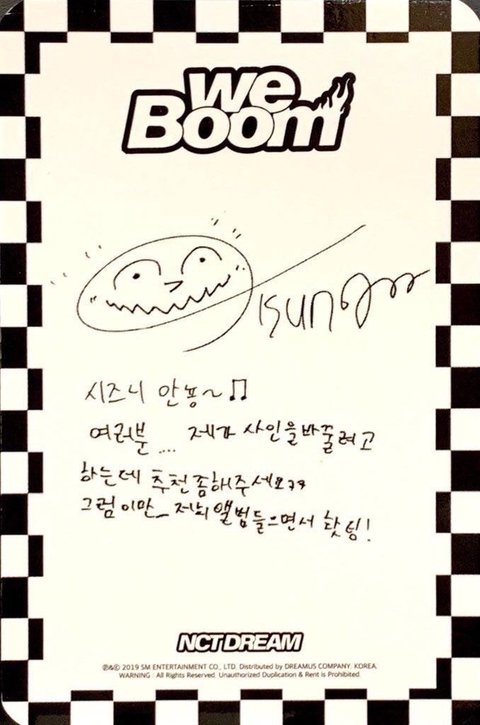 we
Boom
Jisung
시즈니 안뇽~♫
여러분.... 제가 사인을바꿀려고
하는데 추천좀해주세요ㅋㅋ
그럼 이만_ 저희앨범들으면서 핫팅!
NCT DREAM
℗&© 2019 SM ENTERTAINMENT CO., LTD. Distributed by DREAMUS COMPANY. KOREA.
WARNING : All Rights Reserved. Unauthorized Duplication & Rent is Prohibited.